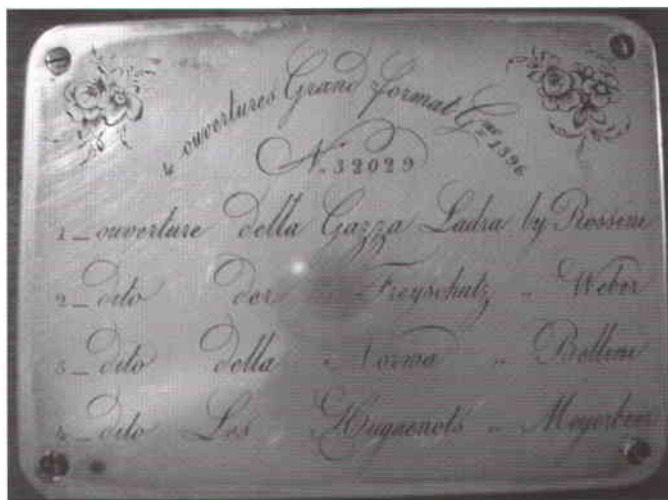 4 ouvertures Grand format Gme 1396
No. 32029
1_ ouverture della Gazza Ladra by Rossini
2_ dito der Freyschutz " Weber
3_ dito della Norma " Bellini
4_ dito Les Huguenots " Meyerbeer